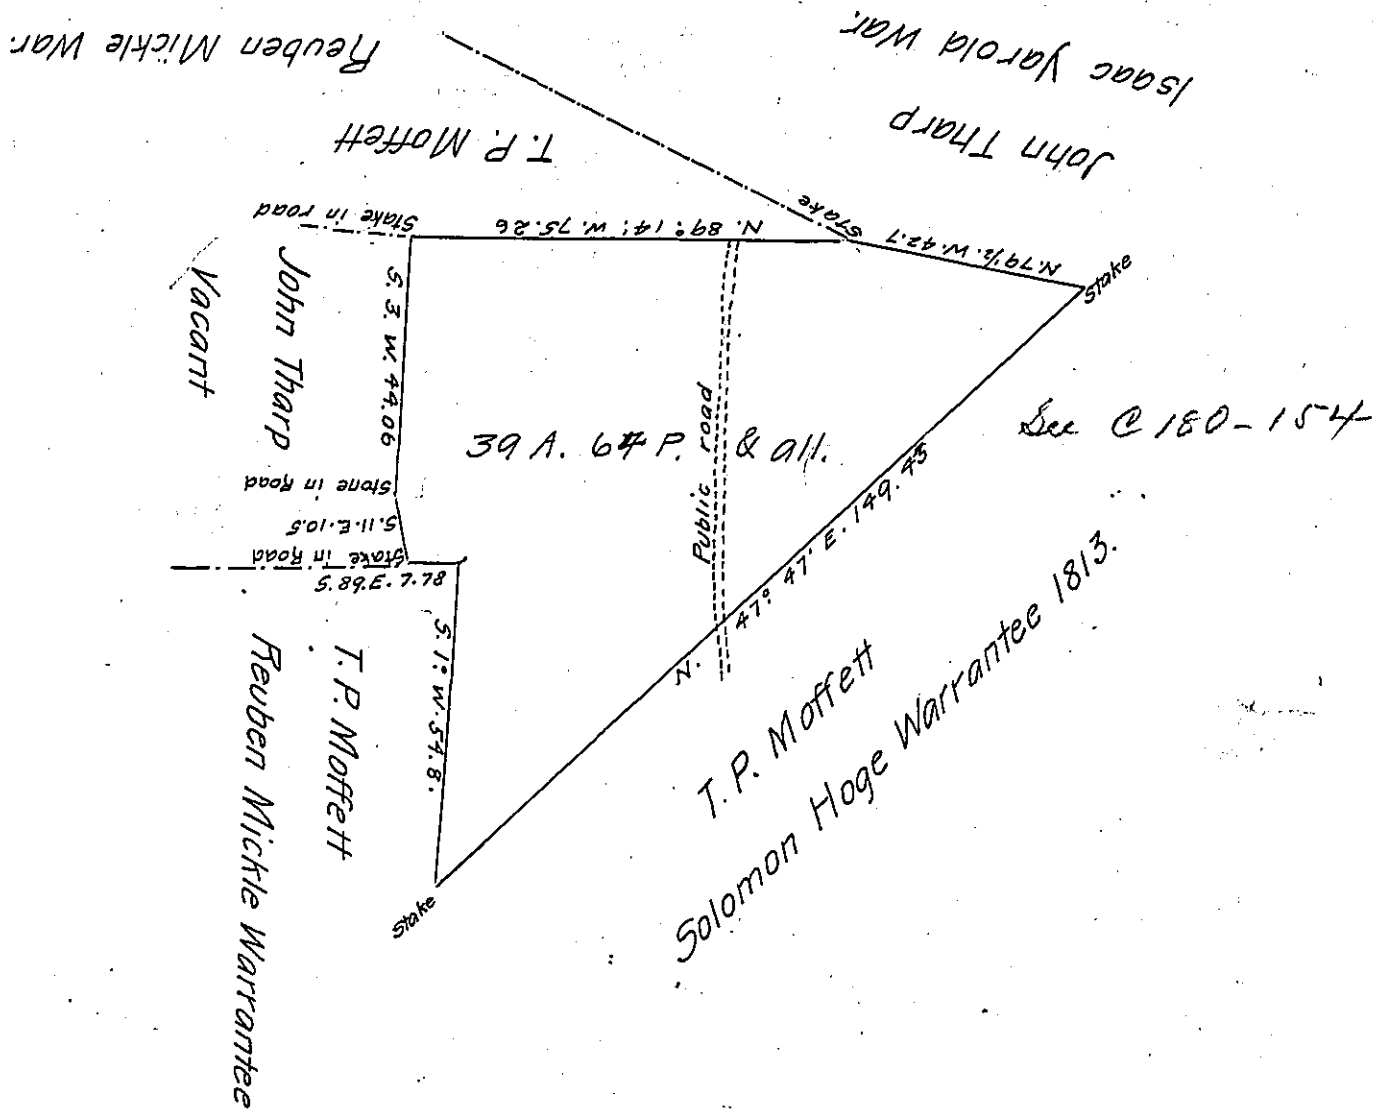 Reuben Mickle War.
Isaac Yarold War.
John Tharp
T. P. Moffett
Stake in road
N. 89° 14' W. 75.26
Stake
N. 79½. W. 42.7
Stake
Vacant
John Tharp
S. 3. W. 44.06
39 A. 64 P. & all.
Public road
See C 180-154
Stone in Road
S. 11. E. 10.5
Stake in Road
S. 89 E. 7.78
S. 1° W. 54.8.
N. 47° 47' E. 149.45
T. P. Moffett
Reuben Mickle Warrantee
T. P. Moffett
Solomon Hoge Warrantee 1813.
Stake